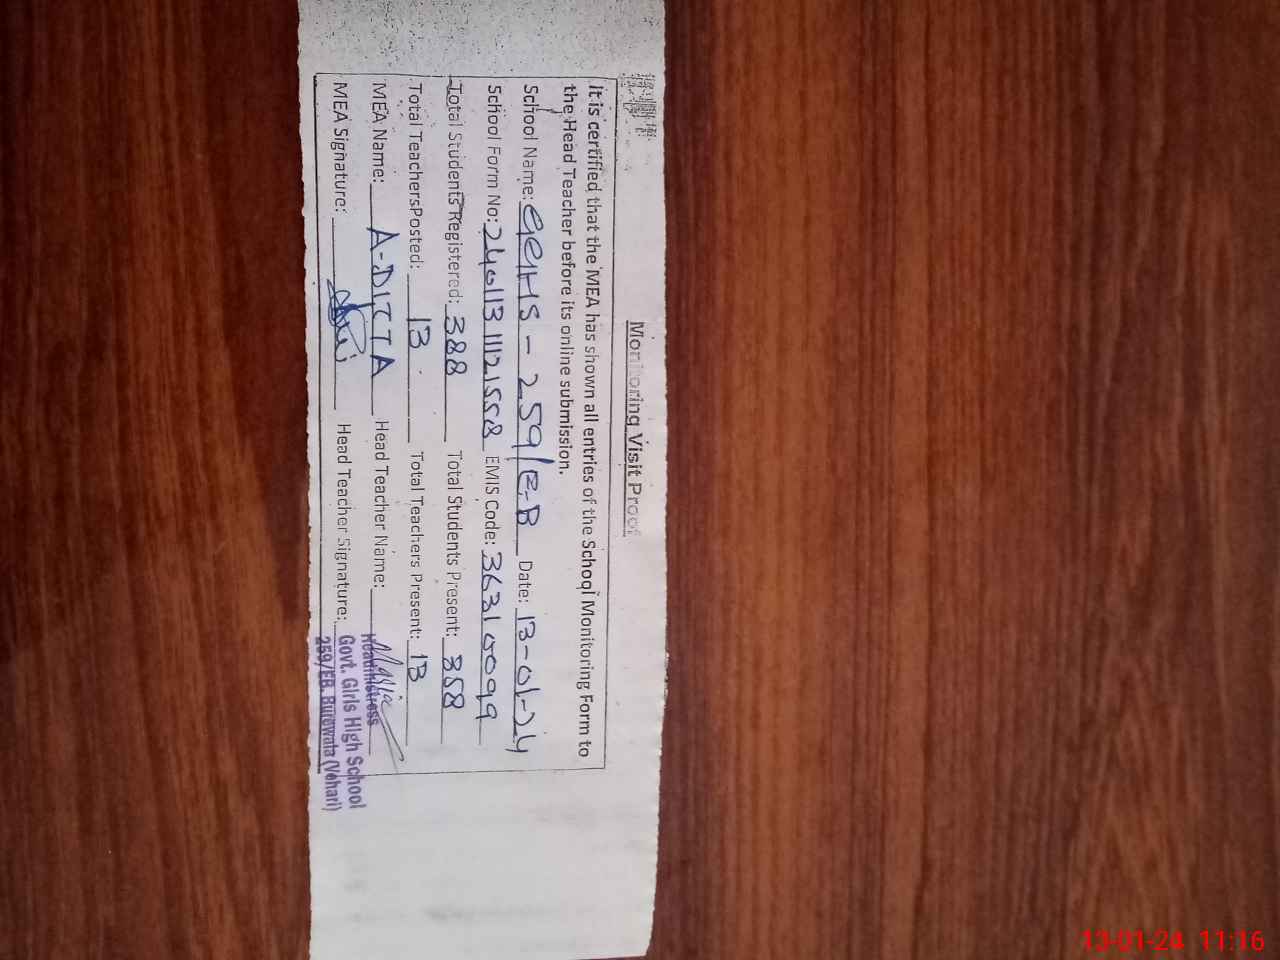 Monitoring Visit Proof
It is certified that the MEA has shown all entries of the School Monitoring Form to
the Head Teacher before its online submission.
School Name: GGHS - 259/E.B Date: 13-01-24
School Form No: 240113111121558 EMIS Code: 36310099
Total Students Registered: 388 Total Students Present: 358
Total TeachersPosted: 13 Total Teachers Present: 13
MEA Name: A-DITTA Head Teacher Name:
MEA Signature: Head Teacher Signature:
Headmistress
Govt. Girls High School
259/EB. Burewala (Vehari)
13-01-24 11:16